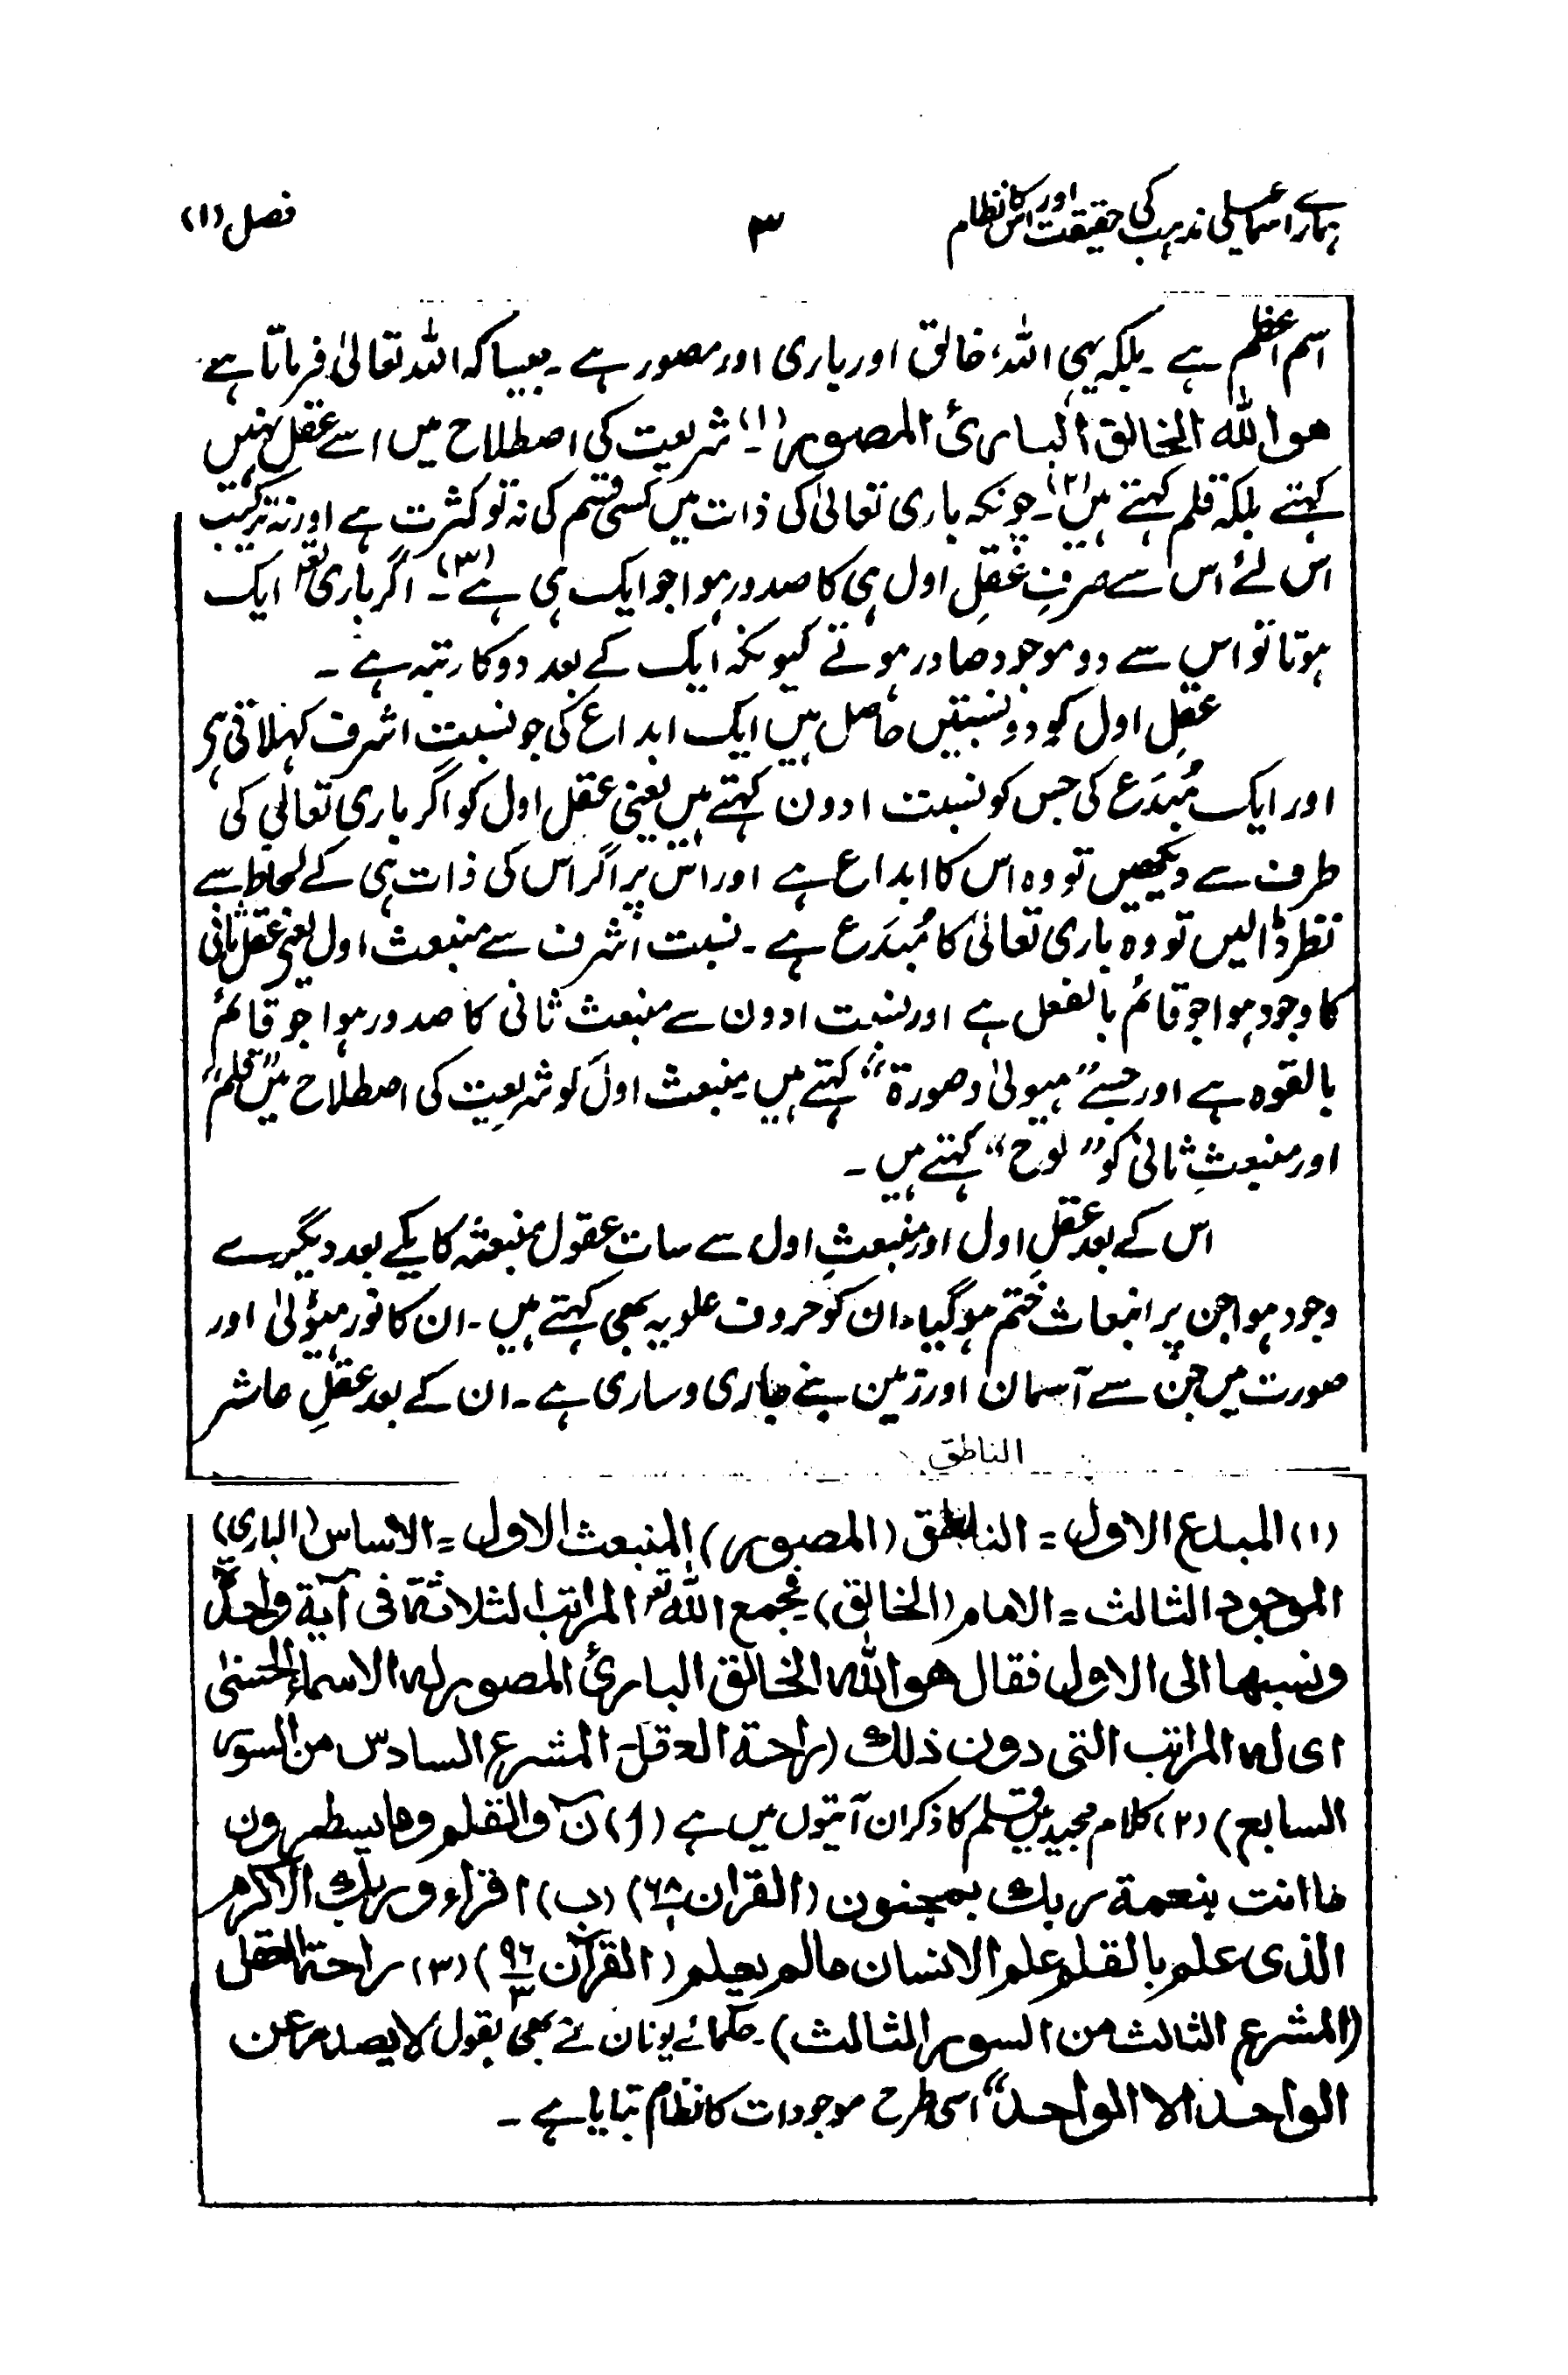 ہمارے اسماعیلی مذہب کی حقیقت اور اس کا نظام ۳ فصل (۱)
اسم اعظم ہے ۔ بلکہ یہی اللہ، خالق اور باری اور مصور ہے ۔ جیسا کہ اللہ تعالیٰ فرماتا ہے
ھو اللہ الخالق البارئ المصور (۱)۔ شریعت کی اصطلاح میں اسے عقل نہیں
کہتے بلکہ قلم کہتے ہیں (۲)۔ چونکہ باری تعالیٰ کی ذات میں کسی قسم کی نہ تو کثرت ہے اور نہ ترکیب
اس لئے اس سے صرف عقلِ اول ہی کا صدور ہوا جو ایک ہی ہے (۳)۔ اگر باری تعم ایک
ہوتا تو اس سے دو موجود صادر ہوتے کیونکہ ایک کے بعد دو کا رتبہ ہے ۔
عقلِ اول کو دو نسبتیں حاصل ہیں ایک ابداع کی جو نسبتِ اشرف کہلاتی ہی
اور ایک مُبدَع کی جس کو نسبت ادون کہتے ہیں یعنی عقل اول کو اگر باری تعالیٰ کی
طرف سے دیکھیں تو وہ اس کا ابداع ہے اور اس پر اگر اس کی ذات ہی کے لحاظ سے
نظر ڈالیں تو وہ باری تعالیٰ کا مُبدَع ہے ۔ نسبت اشرف سے منبعث اول یعنی عقل ثانی
کا وجود ہوا جو قائم بالفعل ہے اور نسبت ادون سے منبعث ثانی کا صدور ہوا جو قائم
بالقوہ ہے اور جسے "ہیولیٰ و صورة" کہتے ہیں منبعث اول کو شریعت کی اصطلاح میں "قلم"
اور منبعثِ ثانی کو "لوح" کہتے ہیں ۔
اس کے بعد عقلِ اول اور منبعثِ اول سے سات عقول منبعثہ کا یکے بعد دیگرے
وجود ہوا جن پر انبعاث ختم ہوگیا۔ ان کو حروف علویہ بھی کہتے ہیں ۔ ان کا نور ہیولیٰ اور
صورت میں جن سے آسمان اور زمین بنے جاری و ساری ہے ۔ ان کے بعد عقلِ عاشر
الناطق
(۱) المبدع الاول = الناطق (المصور) المنبعث الاول = الاساس (الباری)
الموجود الثالث = الامام (الخالق) فجمع اللہ تعم المراتب الثلاثة فی آیة واحدة
ونسبھا الی الاول فقال ھو اللہ الخالق البارئ المصور لہ الاسماء الحسنیٰ
ای لہ المراتب التی دون ذلك (راحة العقل۔ المشرع السادس من السور
السابع) (۲) کلام مجید میں قلم کا ذکر ان آیتوں میں ہے (ا) نٓ والقلم وما یسطرون
ما انت بنعمة ربك بمجنون (القران ۶۸/۱) (ب) اقراء وربك الاکرم
الذی علم بالقلم علم الانسان مالم یعلم (القرآن ۹۶/۳) (۳) راحة العقل
(المشرع الثالث من السور الثالث)۔ حکمائے یونان نے بھی بقول لا یصدر عن
الواحد الا الواحد" اسی طرح موجودات کا نظام بتایا ہے ۔